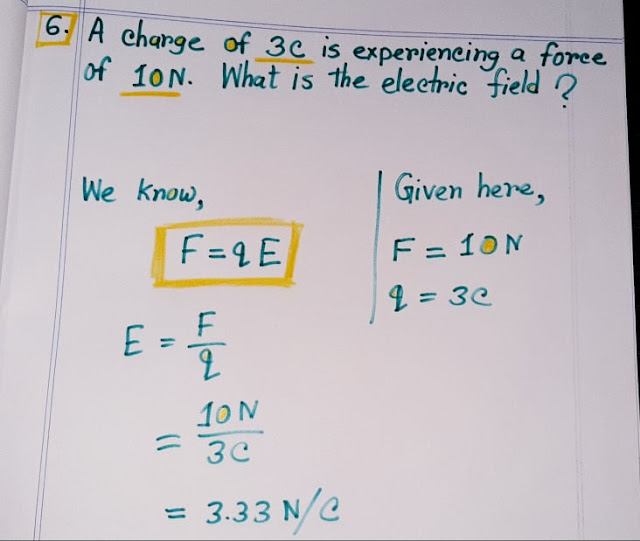 6. A charge of 3C is experiencing a force
of 10N. What is the electric field ?
We know,
F = qE
E = F/q
= 10N/3C
= 3.33 N/C
Given here,
F = 10N
q = 3C